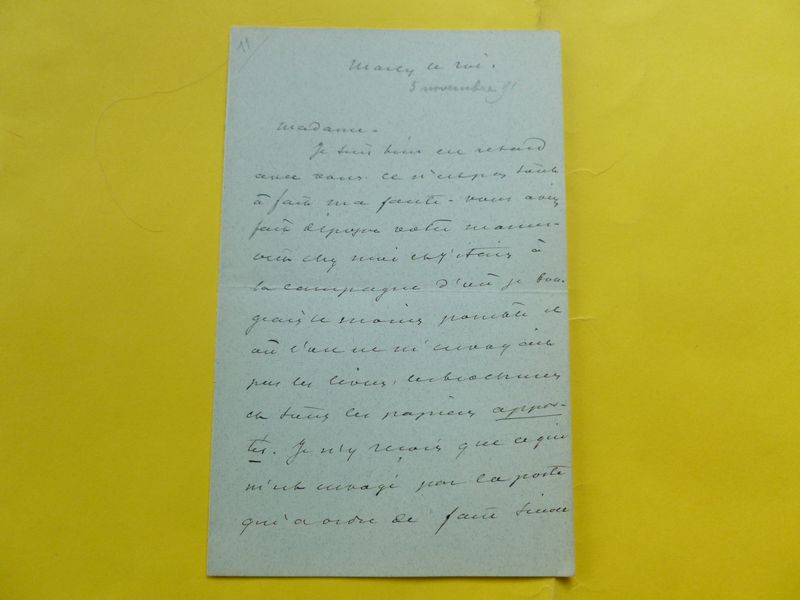 Marly le roi.
5 novembre 91
Madame -
Je suis bien en retard
avec vous. ce n'est pas tout
à fait ma faute - vous aviez
fait déposer votre manus-
crit chez moi et j'étais à
la campagne d'où je bou-
geais le moins possible et
où l'on ne m'envoyait
pas les livres, les brochures
et tous les papiers appor-
tés. Je n'y reçois que ce qui
m'est envoyé par la poste
qui a ordre de faire suivre